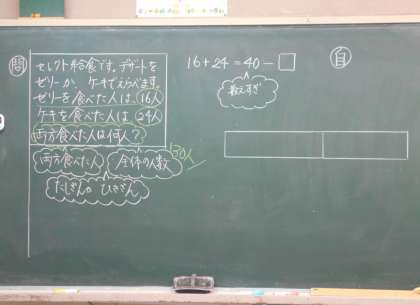 問
セレクト給食です。デザートを
ゼリーか、ケーキでえらべます。
ゼリーを食べた人は、16人
ケーキを食べた人は、24人
両方食べた人は何人？
両方食べた人
全体の人数
30人
たしざん ひきざん
16+24=40-□
数えすぎ
自